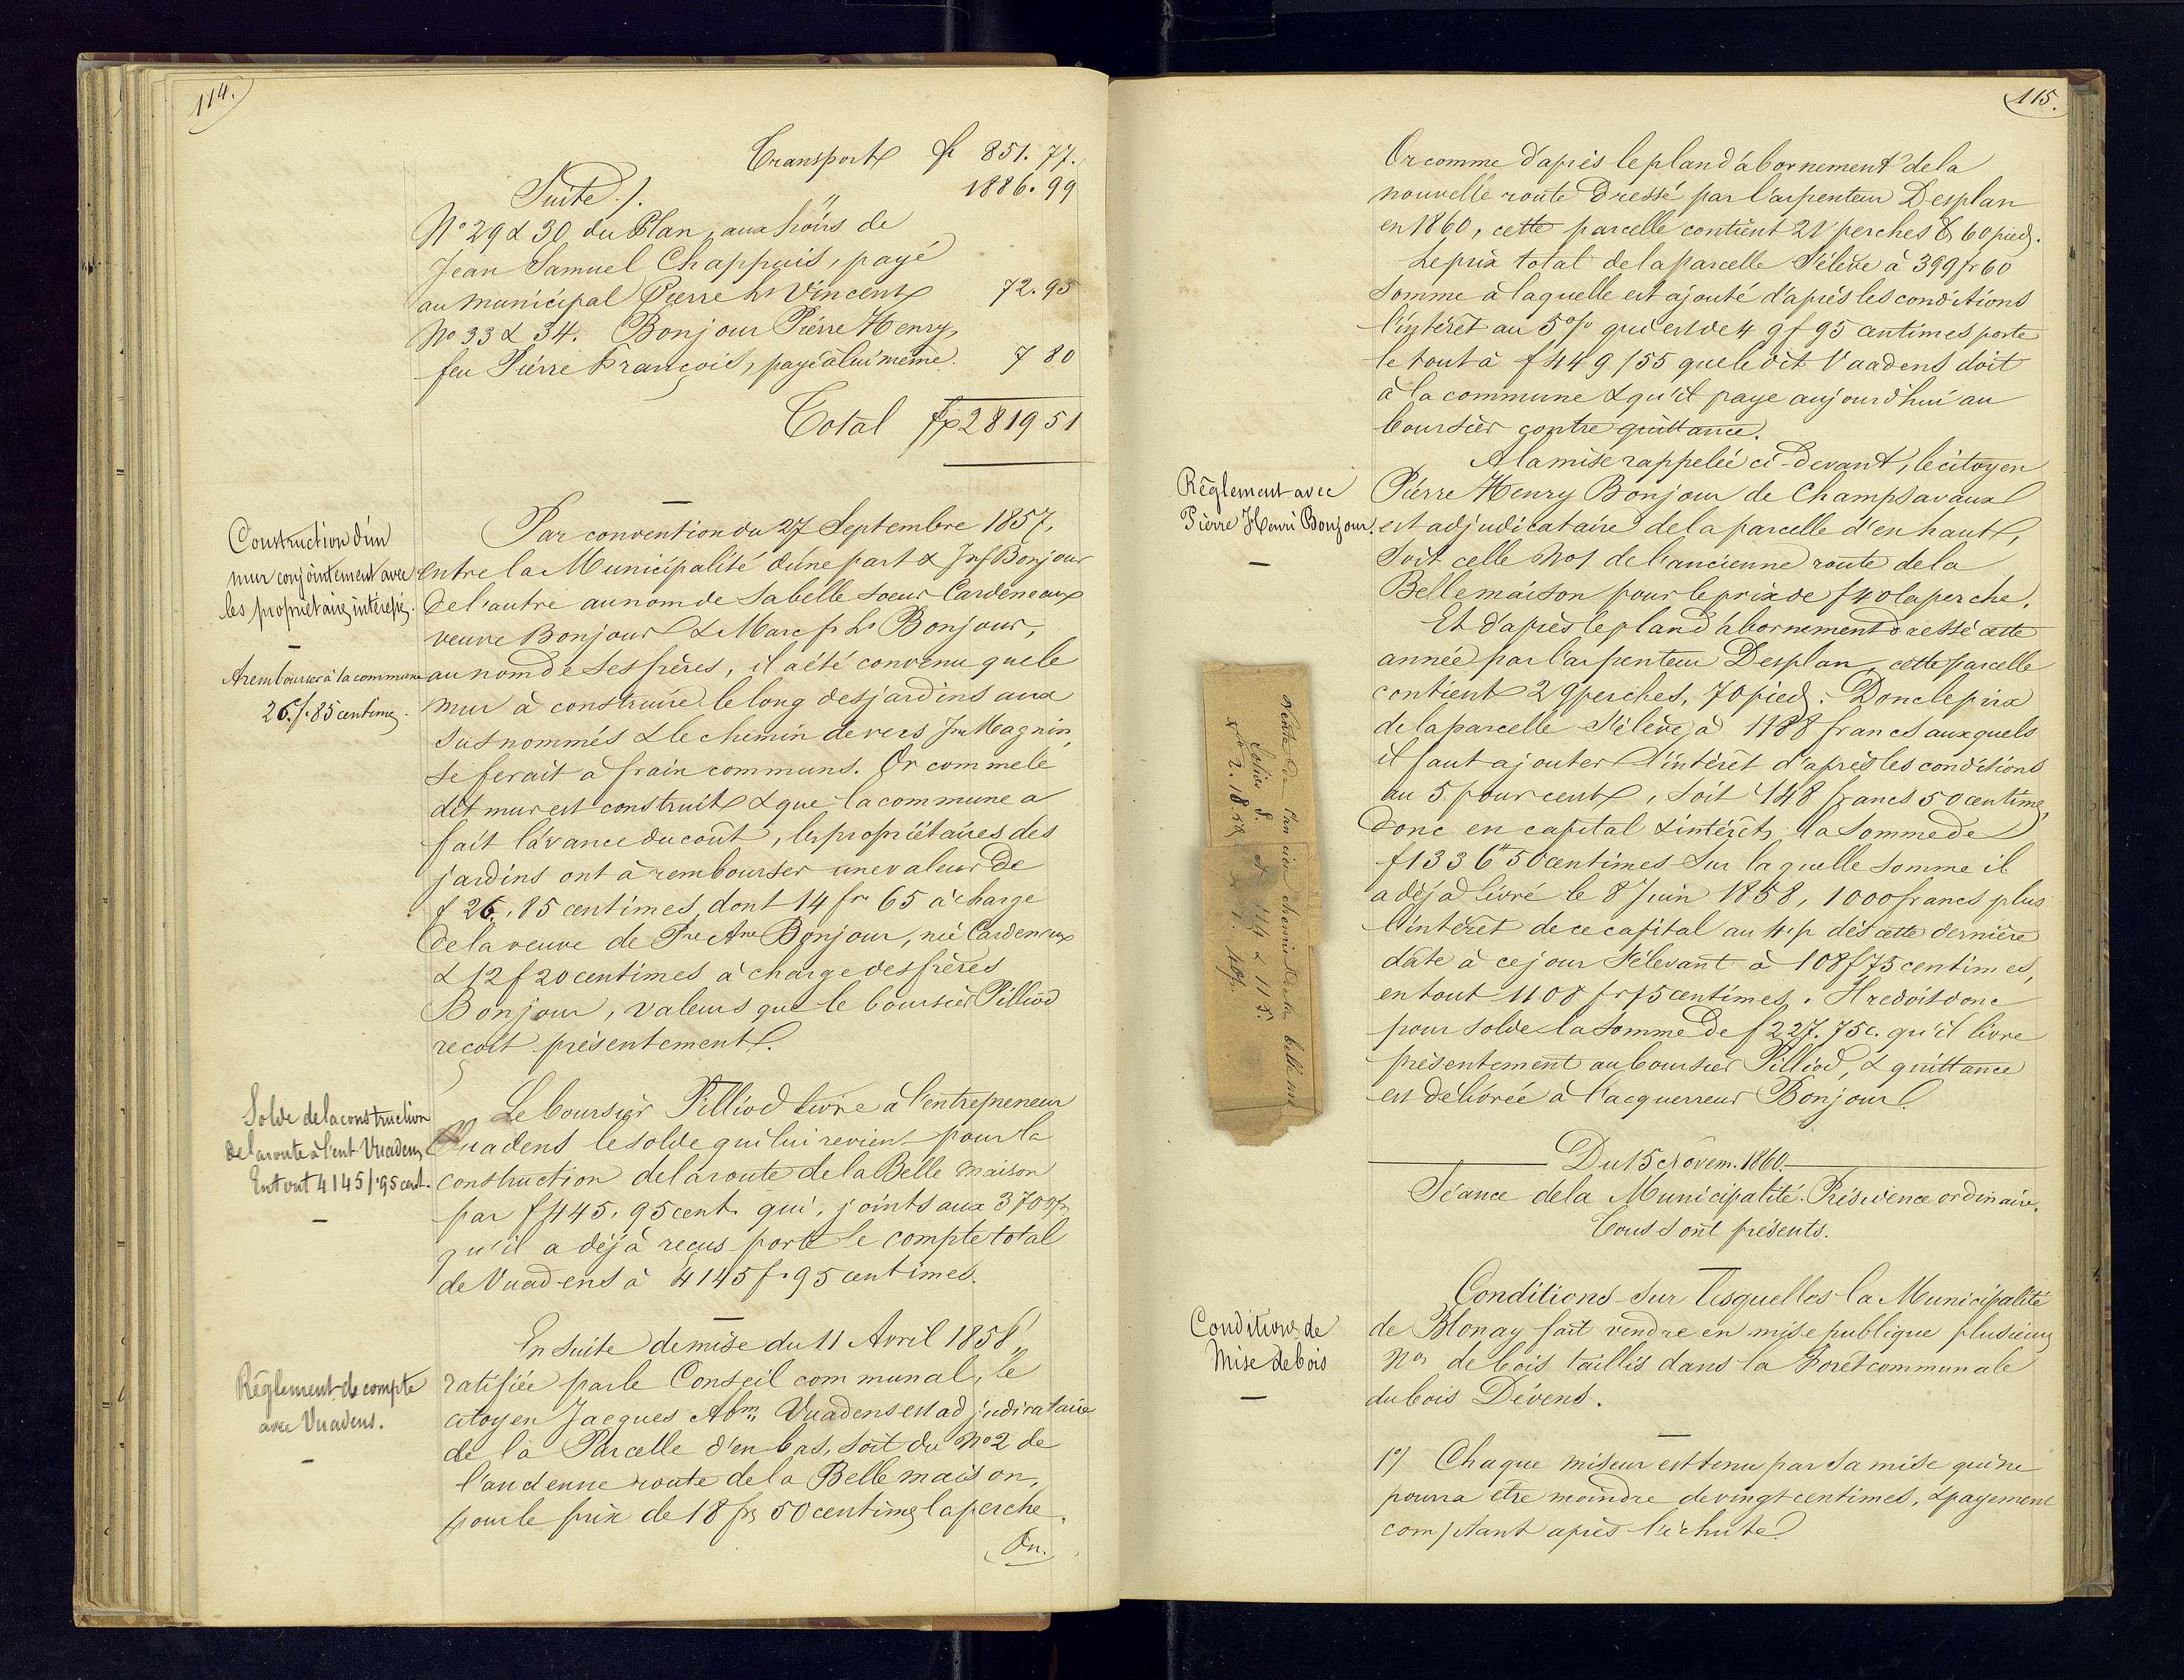 114.
Transport fr 851. 77.
Suite /. " 1886. 99
No 29 & 30 du Plan, aux hoirs de
Jean Samuel Chappuis, payé
au municipal Pierre Ls Vincent 72. 95
No 33 & 34. Bonjour Pierre Henry,
feu Pierre François, payé à lui même. 7 80
Total fr 2819 51
Construction d'un
mur conjointement avec
les propriétaires intéressés.
A rembourser à la commune
26 f. 85 centimes.
Par convention du 27 Septembre 1857,
entre la Municipalité d'une part & Jn fs Bonjour
de l'autre au nom de sa belle soeur Cardeneaux
veuve Bonjour & Marc fs Ls Bonjour,
au nom de ses frères, il a été convenu que le
mur à construire le long des jardins aux
susnommés & le chemin devers Jn Magnin,
se ferait à frais communs. Or comme le
dit mur est construit & que la commune a
fait l'avance du coût, les propriétaires des
jardins ont à rembourser une valeur de
f 26. 85 centimes, dont 14 fr 65 à charge
de la veuve de Pre Ane Bonjour, née Cardeneaux
& 12 f 20 centimes à charge des frères
Bonjour, valeurs que le boursier Pilliod
reçoit présentement.
Solde de la construction
de la route à l'ent. Vuadens
En tout 4145 f. 95 cent.
Le boursier Pilliod livre à l'entrepreneur
Vuadens le solde qui lui revient pour la
construction de la route de la Belle maison
par f 445. 95 cent. qui, joints aux 3700 fr
qu'il a déjà reçus porte le compte total
de Vuadens à 4145 f. 95 centimes.
Règlement de compte
avec Vuadens.
Ensuite de mise du 11 Avril 1858,
ratifiée par le Conseil communal, le
citoyen Jacques Abm Vuadens est adjudicataire
de la Parcelle d'en bas, soit du No 2 de
l'ancienne route de la Belle maison,
pour le prix de 18 frs 50 centimes la perche.
On.
115.
Or comme d'après le plan d'abornement de la
nouvelle route dressé par l'arpenteur Desplan
en 1860, cette parcelle contient 21 perches & 60 pieds.
Le prix total de la parcelle s'élève à 399 fr 60
somme à laquelle est ajouté d'après les conditions
l'intérêt au 5 % qui est de 49 f 95 centimes porte
le tout à f 449 / 55 que le dit Vuadens doit
à la commune & qu'il paye aujourd'hui au
boursier contre quittance.
Règlement avec
Pierre Henri Bonjour.
A la mise rappelée ci-devant, le citoyen
Pierre Henry Bonjour de Champsavaux
est adjudicataire de la parcelle d'en haut,
soit celle No 1 de l'ancienne route de la
Belle maison pour le prix de f 40 la perche.
Et d'après le plan d'abornement dressé cette
année par l'arpenteur Desplan, cette parcelle
contient 29 perches, 70 pieds. Donc le prix
de la parcelle s'élève à 1188 francs auxquels
il faut ajouter l'intérêt d'après les conditions
au 5 pour cent, soit 148 francs 50 centimes,
donc en capital & intérêts la somme de
f 1336 " 50 centimes sur laquelle somme il
a déjà livré le 8 Juin 1858, 1000 francs plus
l'intérêt de ce capital au 4 p dès cette dernière
date à ce jour s'élevant à 108 f 75 centimes,
en tout 1108 fr 75 centimes. Il redoit donc
pour solde la somme de f 227. 75 c. qu'il livre
présentement au boursier Pilliod, & quittance
est délivrée à l'acquerreur Bonjour.
Vente de l'ancien chemin de la belle
folio 8. & 114 & 115.
Du 15 Novem. 1860.
Séance de la Municipalité. Présidence ordinaire.
Tous sont présents.
Conditions de
Mise de bois
Conditions sur lesquelles la Municipalité
de Blonay fait vendre en mise publique plusieurs
Nos de bois taillis dans la Forêt communale
du bois Devens.
1o/ Chaque miseur est tenu par sa mise qui ne
pourra être moindre de vingt centimes, & payement
comptant après l'échute.